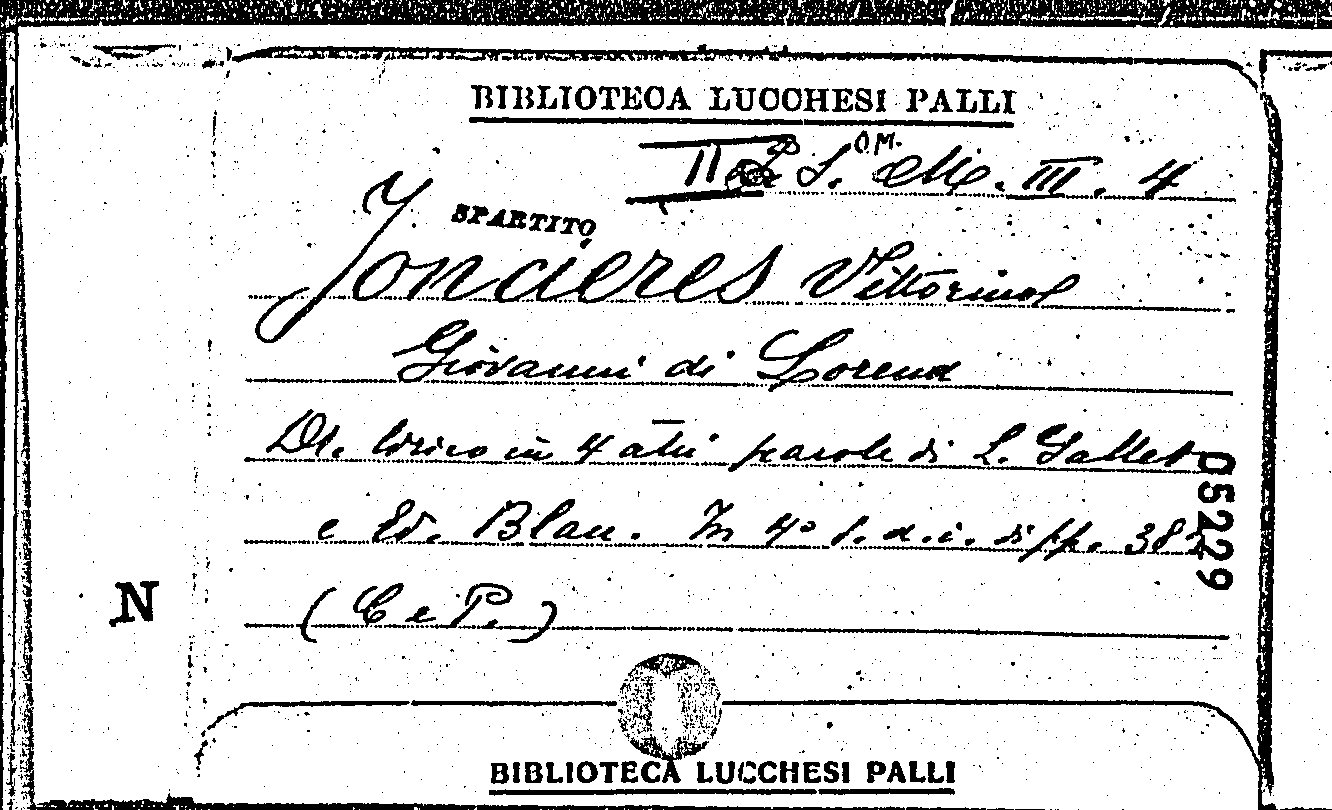 BIBLIOTECA LUCCHESI PALLI
O.M.
II S. M. III. 4
SPARTITO
Joncieres Vittorino
Giovanni di Lorena
Dr. lirico in 4 atti parole di L. Gallet
e Ed. Blau. In 4° s.d.i. di pp. 382
(C e P.)
05229
N
BIBLIOTECA LUCCHESI PALLI